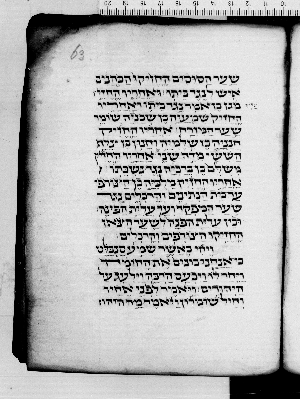 63
שער הסוסים החזיקו הכהנים
איש לנגד ביתו אחריו החזיק
בן אמר נגד ביתו ואחריו
החזיק שמעיה בן שכניה שומר
שער המזרח אחריו החזיק
חנניה בן שלמיה וחנון בן צלף
הששי מדה שני אחריו החזיק
משלם בן ברכיה נגד נשכתו
אחריו החזיק מלכיה בן הצרפי
עד בית הנתינים והרכלים נגד
שער המפקד ועד עלית הפנה
ובין עלית הפנה לשער הצאן
החזיקו הצרפים והרכלים
ויהי כאשר שמע סנבלט
כי אנחנו בונים את החומה
ויחר לו ויכעס הרבה וילעג על
היהודים ויאמר לפני אחיו
וחיל שמרון ויאמר מה היהוד